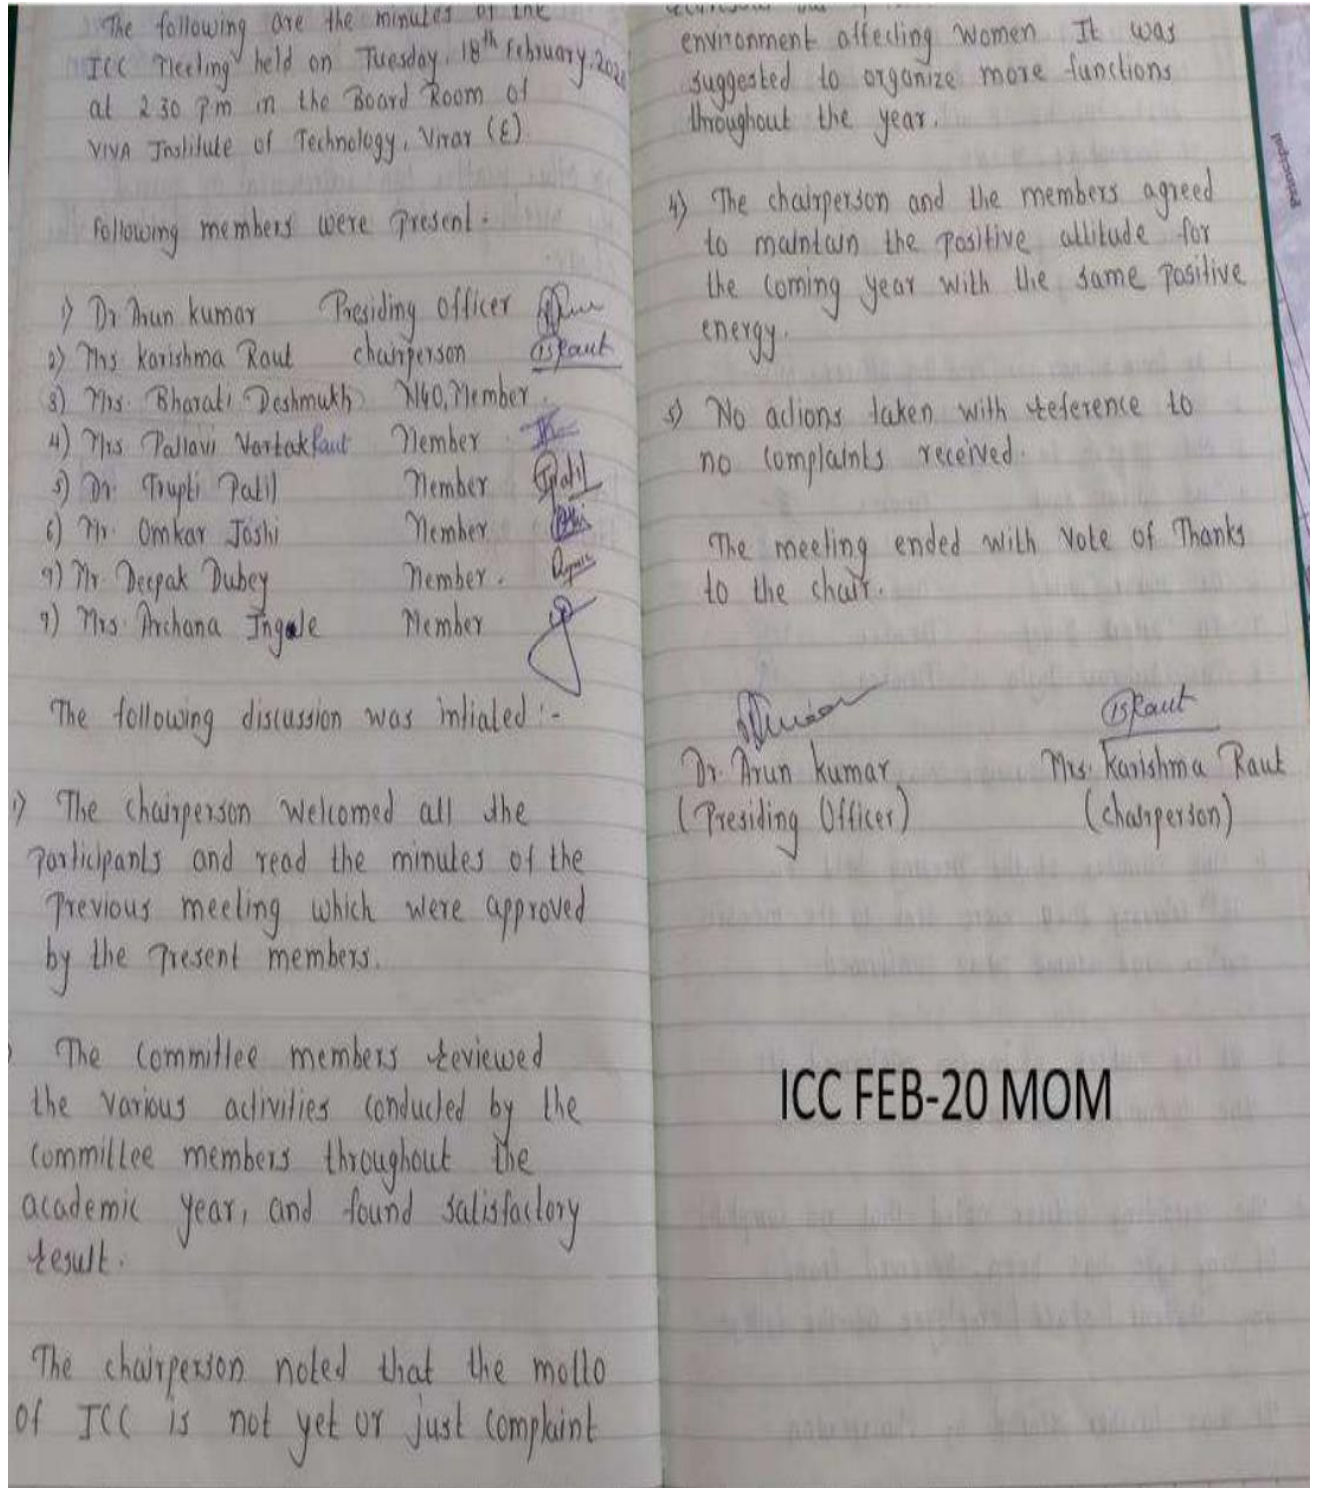 The following are the minutes of the
ICC Meeting held on Tuesday, 18th February, 2020
at 2 30 Pm in the Board Room of
VIVA Institute of Technology, Virar (E)
Following members were Present -
1) Dr Arun kumar Presiding Officer
2) Mrs Karishma Raut chairperson BRaut
3) Mrs. Bharati Deshmukh NGO, Member
4) Mrs Pallavi Vartak Raut Member
5) Dr. Trupti Patil Member TPatil
6) Mr. Omkar Joshi Member
7) Mr Deepak Dubey Member.
9) Mrs. Archana Ingale Member
The following discussion was intiated :-
1) The chairperson Welcomed all the
Participants and read the minutes of the
Previous meeting which were approved
by the Present members.
The Committee members reviewed
the various activities conducted by the
committee members throughout the
academic year, and found satisfactory
result.
The chairperson noted that the motto
of ICC is not yet or just complaint
environment affecting women It was
suggested to organize more functions
throughout the year.
4) The chairperson and the members agreed
to maintain the positive attitude for
the coming year with the same positive
energy.
5) No actions taken with reference to
no complaints received.
The meeting ended with Vote of Thanks
to the chair.
BRaut
Dr. Arun kumar Mrs. Karishma Raut
(Presiding Officer) (chairperson)
ICC FEB-20 MOM
Principal